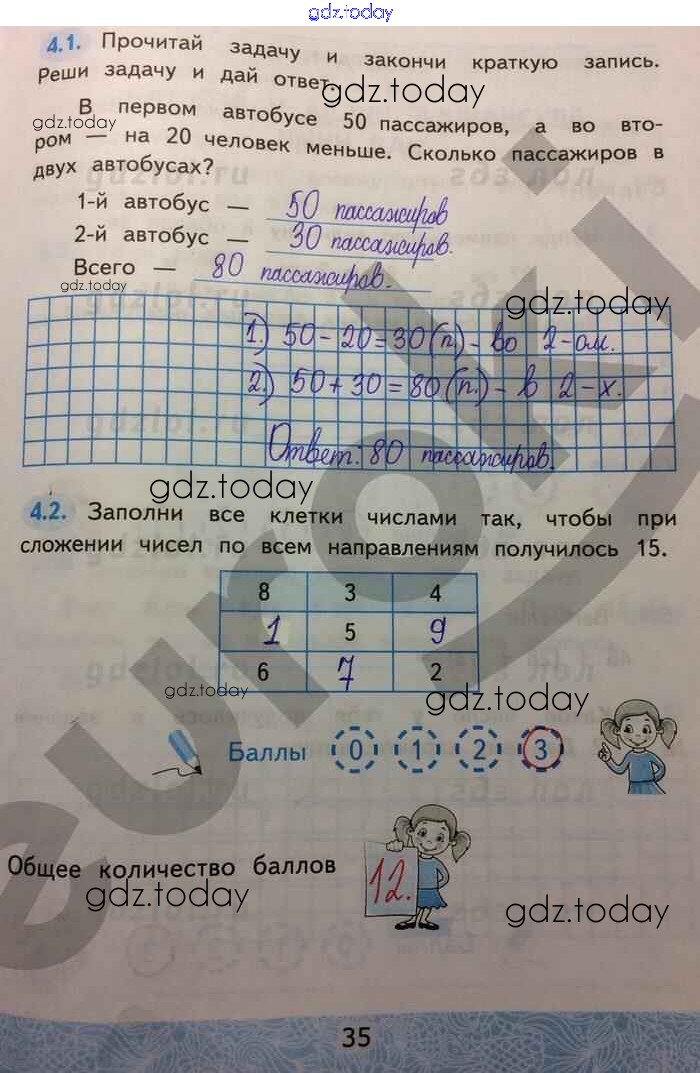 gdz.today
4.1. Прочитай задачу и закончи краткую запись.
Реши задачу и дай ответ.
gdz.today
В первом автобусе 50 пассажиров, а во вто-
gdz.today
ром — на 20 человек меньше. Сколько пассажиров в
двух автобусах?
1-й автобус — 50 пассажиров
2-й автобус — 30 пассажиров.
Всего — 80 пассажиров.
gdz.today
gdz.today
1.) 50-20=30(п.)- во 2-ом.
2.) 50+30=80(п.)- в 2-х.
Ответ: 80 пассажиров.
gdz.today
4.2. Заполни все клетки числами так, чтобы при
сложении чисел по всем направлениям получилось 15.
8 3 4
1 5 9
6 7 2
gdz.today
gdz.today
Баллы 0 1 2 3
Общее количество баллов 12.
gdz.today
gdz.today
35
euroki